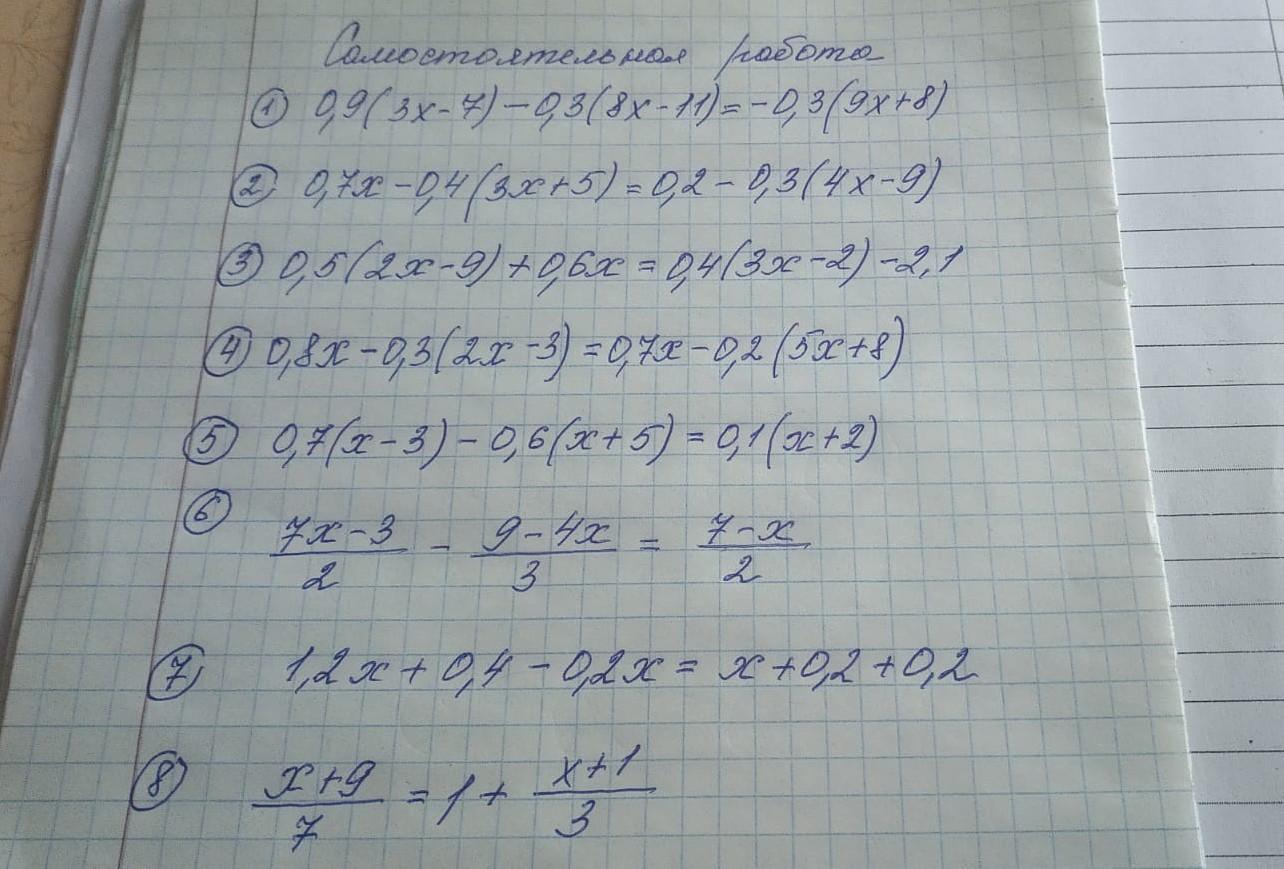 Самостоятельная работа
① 0,9(3x-7)-0,3(8x-11)=-0,3(9x+8)
② 0,7x-0,4(3x+5)=0,2-0,3(4x-9)
③ 0,5(2x-9)+0,6x=0,4(3x-2)-2,1
④ 0,8x-0,3(2x-3)=0,7x-0,2(5x+8)
⑤ 0,7(x-3)-0,6(x+5)=0,1(x+2)
⑥ (7x-3)/2 - (9-4x)/3 = (7-x)/2
⑦ 1,2x+0,4-0,2x=x+0,2+0,2
⑧ (x+9)/7 = 1+ (x+1)/3